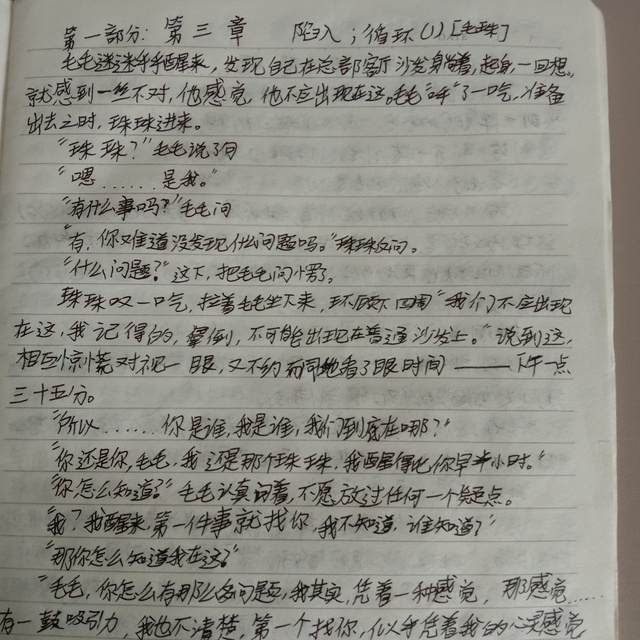 第一部分：第三章 陷入；循环(1)[毛珠]
毛毛迷迷乎乎醒来，发现自己在总部客厅沙发身躺着，起身，一回想。
就感到一丝不对，他感觉，他不应出现在这。毛毛"呼"了一口气，准备
出去之时，珠珠进来。
"珠珠？"毛毛说了句
"嗯……是我。"
"有什么事吗？"毛毛问
"有，你难道没发现什么问题吗。"珠珠反问。
"什么问题？"这下，把毛毛问懵了。
珠珠叹一口气，拉着毛毛坐下来，环顾下四周"我们不应出现
在这，我记得的，晕倒，不可能出现在普通沙发上。"说到这，
相互惊慌对视一眼，又不约而同地看了眼时间——下午一点
三十五分。
"所以……你是谁，我是谁，我们到底在哪？"
"你还是你，毛毛，我还是那个珠珠，我醒得比你早半小时。"
"你怎么知道？"毛毛认真问着，不愿放过任何一个疑点。
"我？我醒来第一件事就找你，我不知道，谁知道？"
"那你怎么知道我在这？"
"毛毛，你怎么有那么多问题，我其实，凭着一种感觉，那感觉……
有一鼓吸引力，我也不清楚，第一个找你，似乎凭着我的心灵感觉